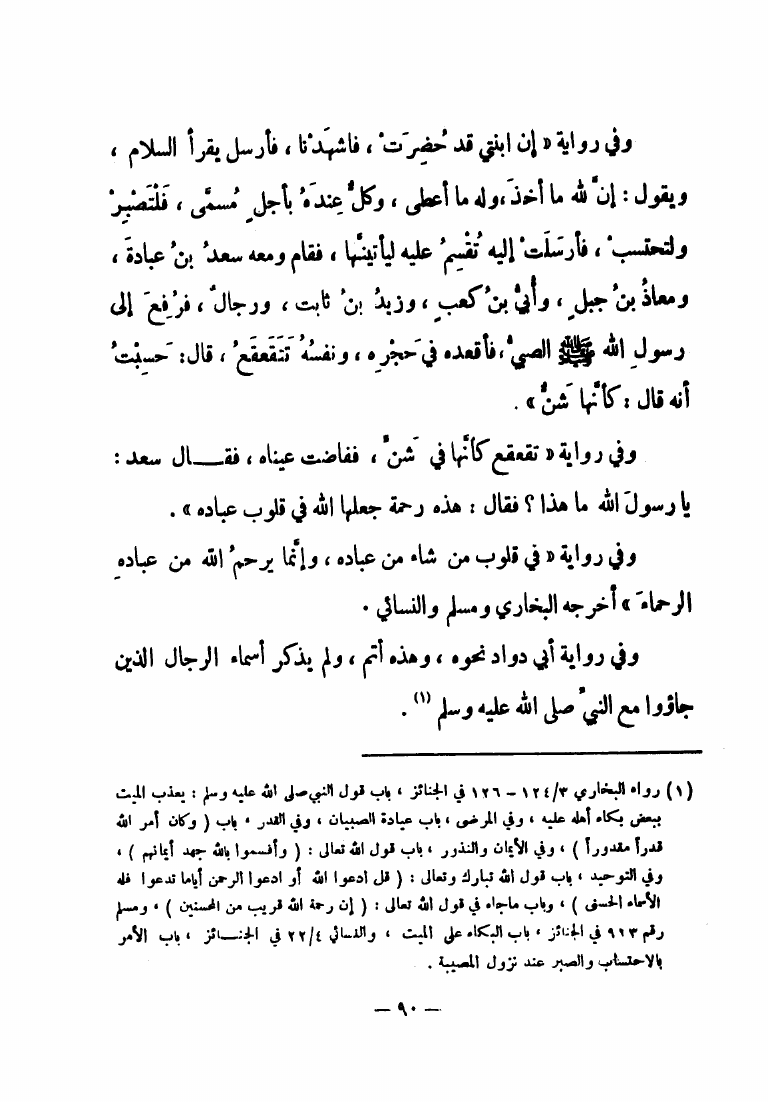 وفي رواية « إن ابنتي قد حُضِرَتْ ، فاشهَدْنا ، فأرسل يقرأ السلام ،
ويقول : إنَّ لله ما أخذَ ،وله ما أعطى ، وكلٌّ عِندَهُ بأجلٍ مُسمَّى ، فَلْتَصْبِرْ
ولتحتسبْ ، فأرسَلَتْ إليه تُقْسِمُ عليه ليأتينَّها ، فقام ومعه سعدُ بنُ عبادةَ ،
ومعاذُ بنُ جبلٍ ، وأُبيُّ بنُ كعبٍ ، وزيدُ بنُ ثابت ، ورجالٌ ، فرُفِعَ إلى
رسولِ الله ﷺ الصبيُّ ،فأقعده في حَجْرِه ، ونفسُهُ تَتَقَعقَعُ ، قال: حَسِبْتُ
أنه قال : كأنَّها شَنٌّ » .
وفي رواية « تقعقع كأنَّها في شَنٍّ ، ففاضت عيناه ، فقـــال سعد :
يا رسولَ الله ما هذا ؟ فقال : هذه رحمة جعلها الله في قلوب عباده » .
وفي رواية « في قلوب من شاء من عباده ، وإنَّما يرحمُ الله من عبادهِ
الرحماءَ » أخرجه البخاري ومسلم والنسائي .
وفي رواية أبي دواد نحوه ، وهذه أتم ، ولم يذكر أسماء الرجال الذين
جاؤوا مع النبيِّ صلى الله عليه وسلم (١) .
(١) رواه البخاري ١٢٤/٣ – ١٢٦ في الجنائز ، باب قول النبي صلى الله عليه وسلم : يعذب الميت
ببعض بكاء أهله عليه ، وفي المرضى ، باب عيادة الصبيان ، وفي القدر ، باب ( وكان أمر الله
قدراً مقدوراً ) ، وفي الأيمان والنذور ، باب قول الله تعالى : ( وأقسموا بالله جهد أيمانهم ) ،
وفي التوحيد ، باب قول الله تبارك وتعالى : ( قل ادعوا الله أو ادعوا الرحمن أياما تدعوا فله
الأسماء الحسنى ) ، وباب ماجاء في قول الله تعالى : ( إن رحمة الله قريب من المحسنين ) ، ومسلم
رقم ٩٢٣ في الجنائز ، باب البكاء على الميت ، والنسائي ٢٢/٤ في الجنـــائز ، باب الأمر
بالاحتساب والصبر عند نزول المصيبة .
– ٩٠ –